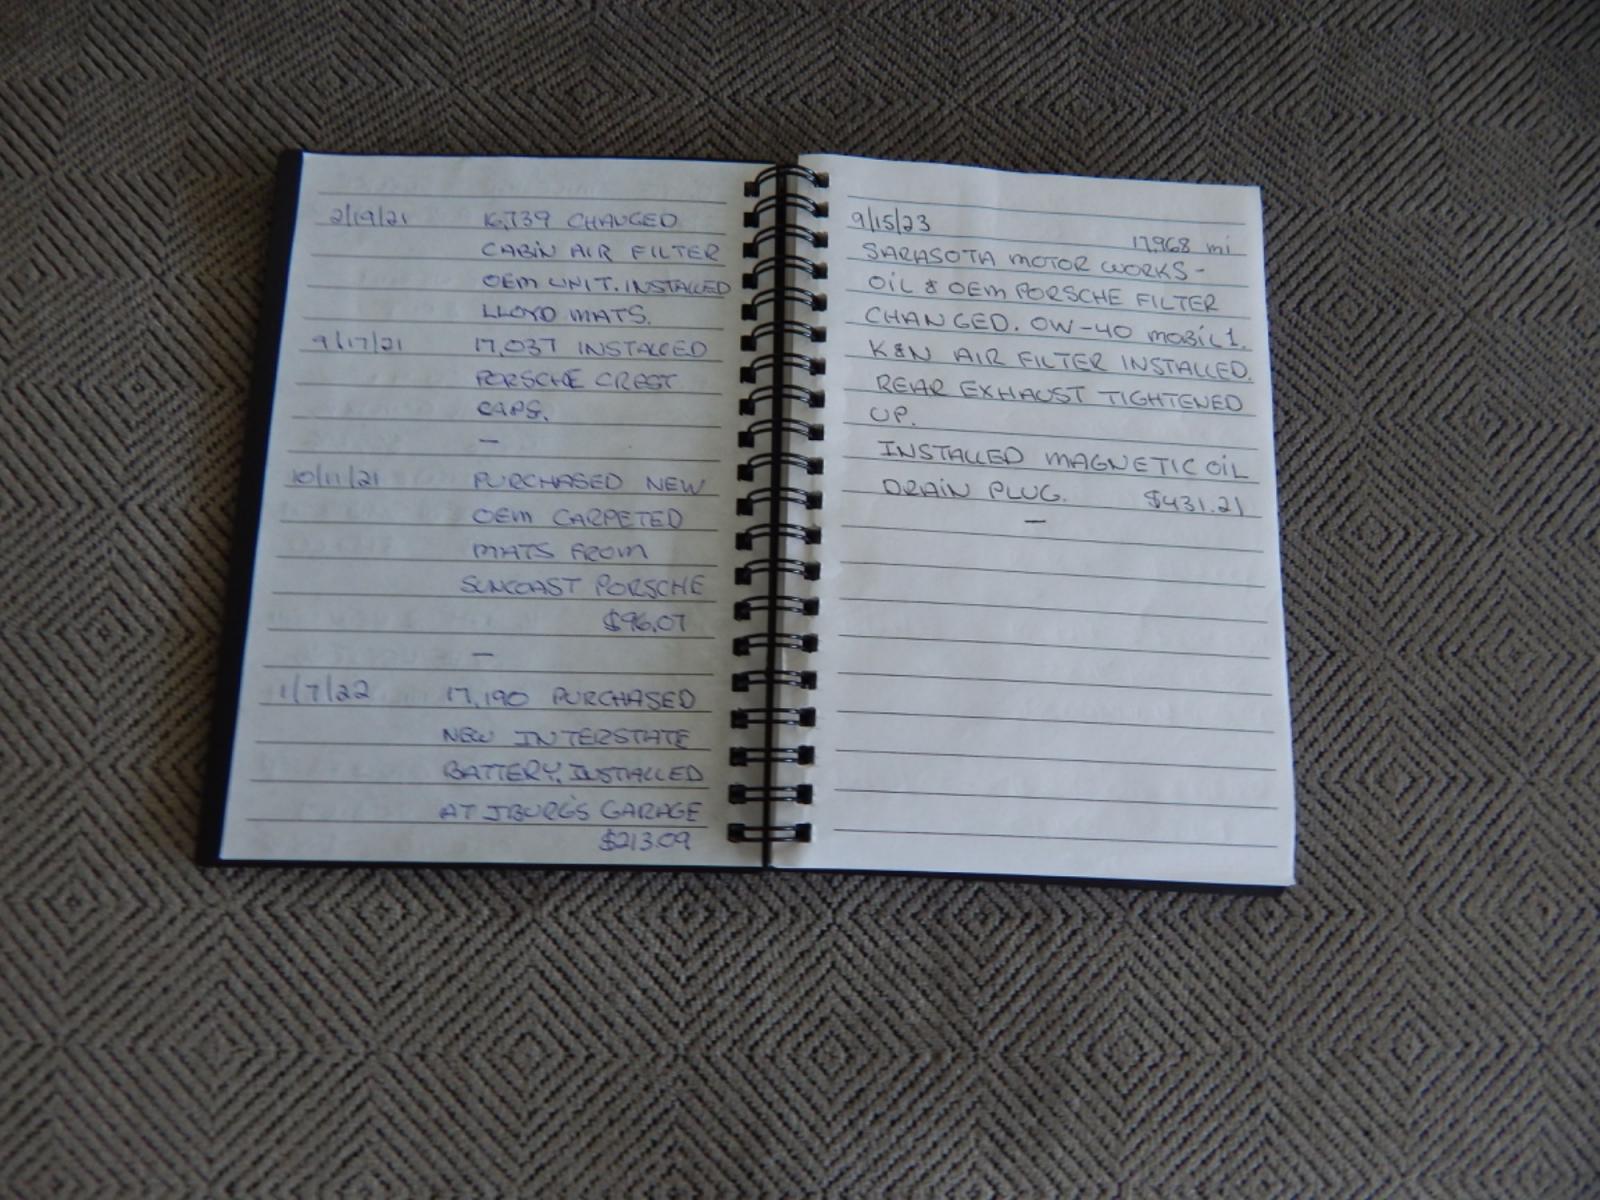 2/19/21 16,739 CHANGED
CABIN AIR FILTER
OEM UNIT. INSTALLED
LLOYD MATS.
9/17/21 17,037 INSTALLED
PORSCHE CREST
CAPS.
—
10/11/21 PURCHASED NEW
OEM CARPETED
MATS FROM
SUNCOAST PORSCHE
$96.07
—
1/7/22 17,190 PURCHASED
NEW INTERSTATE
BATTERY. INSTALLED
AT JBURG'S GARAGE
$213.09
9/15/23
17,968 mi
SARASOTA MOTOR WORKS -
OIL & OEM PORSCHE FILTER
CHANGED. OW-40 MOBIL 1.
K&N AIR FILTER INSTALLED.
REAR EXHAUST TIGHTENED
UP.
INSTALLED MAGNETIC OIL
DRAIN PLUG. $431.21
—